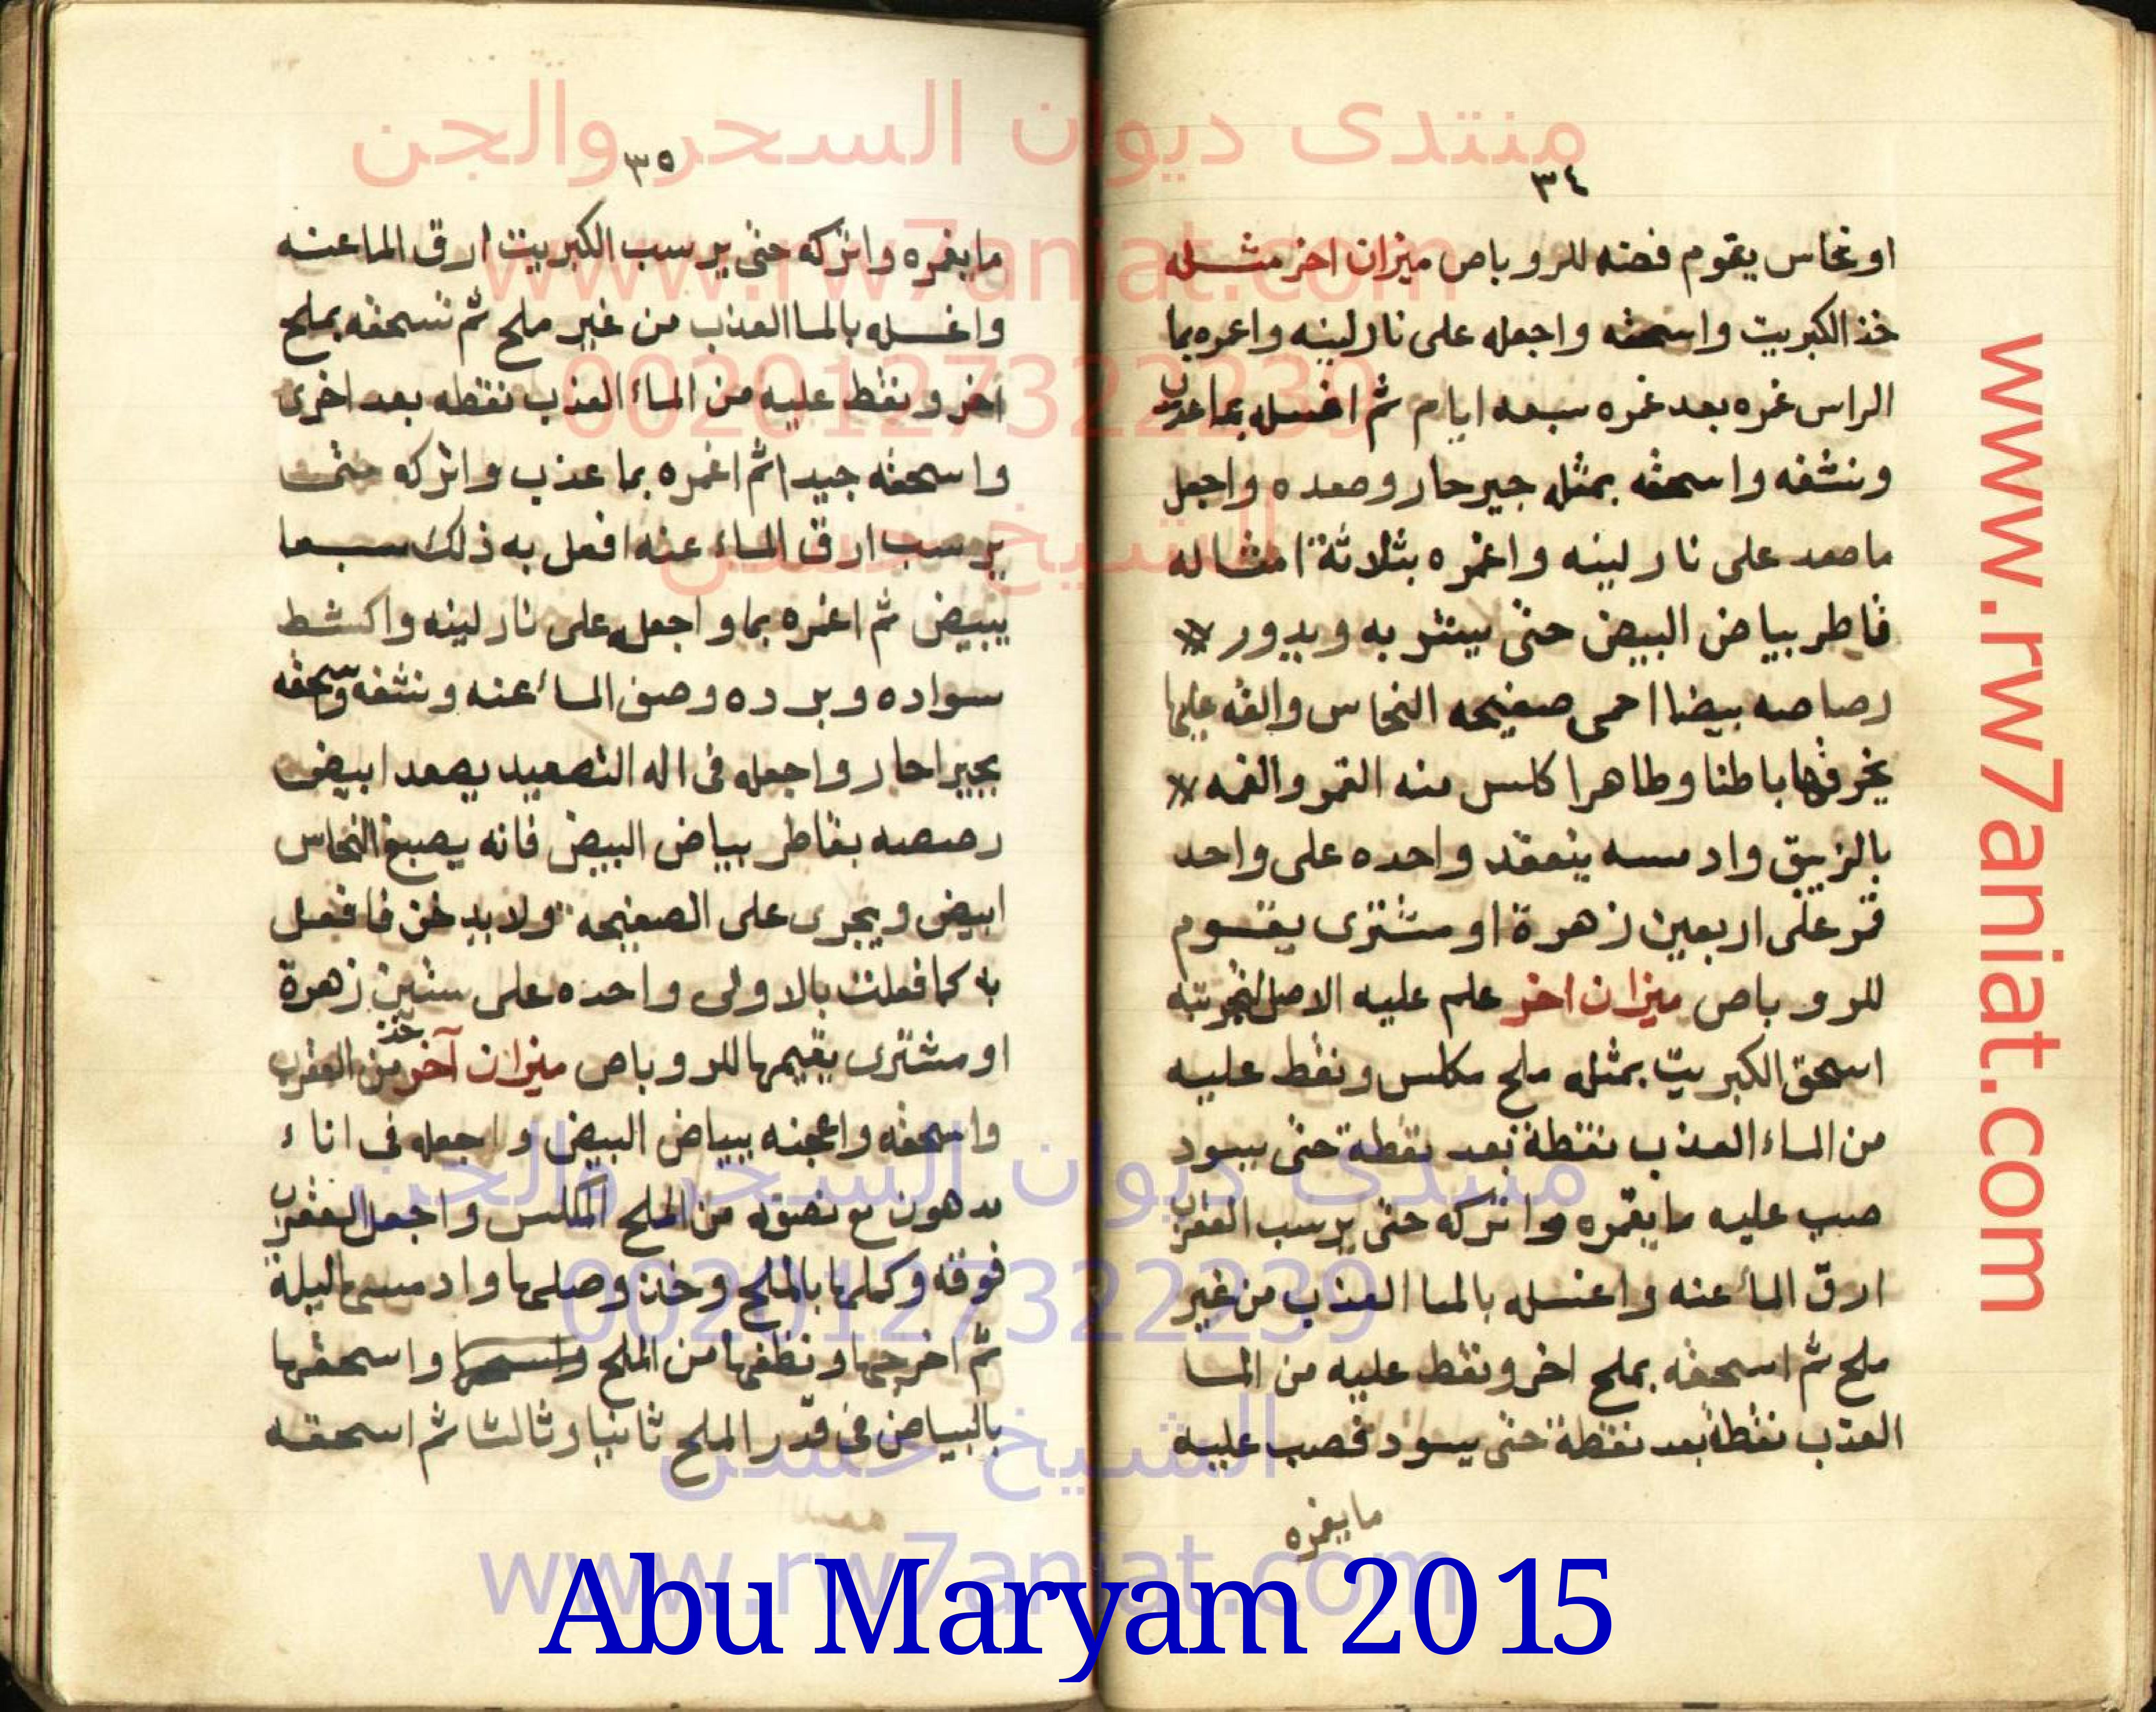 منتدى ديوان السحر والجن
www.rw7aniat.com
00201273222239
الشيخ حسن
٣٤
او نحاس يقوم فضه للروباص ميزان اخر مثله
خذ الكبريت واسحقه واجعله على نار لينه واغمره بما
الراس غمره بعد غمره سبعه ايام ثم اغسله بما عذب
ونشفه واسحقه بمثله جير حار وصعده واجعل
ما صعد على نار لينه واغمره بثلاثة امثاله
قاطر بياض البيض حتى يبتر به ويدور
رصاصه بيضا احمى صفيحه النحاس والقه عليها
يخرقها باطنا وظاهرا كلس منه القمر والقمه
بالزيبق وادمسه ينعقد واحده على واحد
قمر على اربعين زهرة او مشترى يقوم
للروباص ميزان اخر علم عليه الاصل لتجربته
اسحق الكبريت بمثله ملح مكلس ونقط عليه
من الماء العذب نقطة بعد نقطة حتى يسود
صب عليه ما يغمره واتركه حتى يرسب العقرب
ارق الماء عنه واغسله بالما العذب من غير
ملح ثم اسحقه بملح اخر ونقط عليه من الما
العذب نقطة بعد نقطة حتى يسود فصب عليه
ما يغمره
٣٥
ما يغمره واتركه حتى يرسب الكبريت ارق الما عنه
واغسله بالما العذب من غير ملح ثم تسحقه بملح
اخر ونقط عليه من الماء العذب نقطه بعد اخرى
واسحقه جيدا ثم اغمره بما عذب واتركه حتى
يرسب ارق الماء عنه افعل به ذلك سبعا
يبيض ثم اغمره بما واجعله على نار لينه واكشط
سواده وبرده وصف الماء عنه ونشفه وسحقه
بجير احار واجعله فى اله التصعيد يصعد ابيض
رصصه بقاطر بياض البيض فانه يصبغ النحاس
ابيض ويجرى على الصفيحه ولا يدخن فافعل
به كما فعلت بالاولى واحده على ستين زهرة
او مشترى يقيمها للروباص ميزان آخر خذ من العقرب
واسحقه واعجنه ببياض البيض واجعله فى اناء
مدهون مع نصفه من الملح المكلس واجعل العقرب
فوقه وكملها بالملح وخذ وصلها وادمسها ليلة
ثم اخرجها ونظفها من الملح واسحقها
بالبياض فى قدر الملح ثانيا وثالثا ثم اسحقه
منتدى ديوان السحر والجن
00201273222239
الشيخ حسن
www.rw7aniat.com
Abu Maryam 2015
www.rw7aniat.com